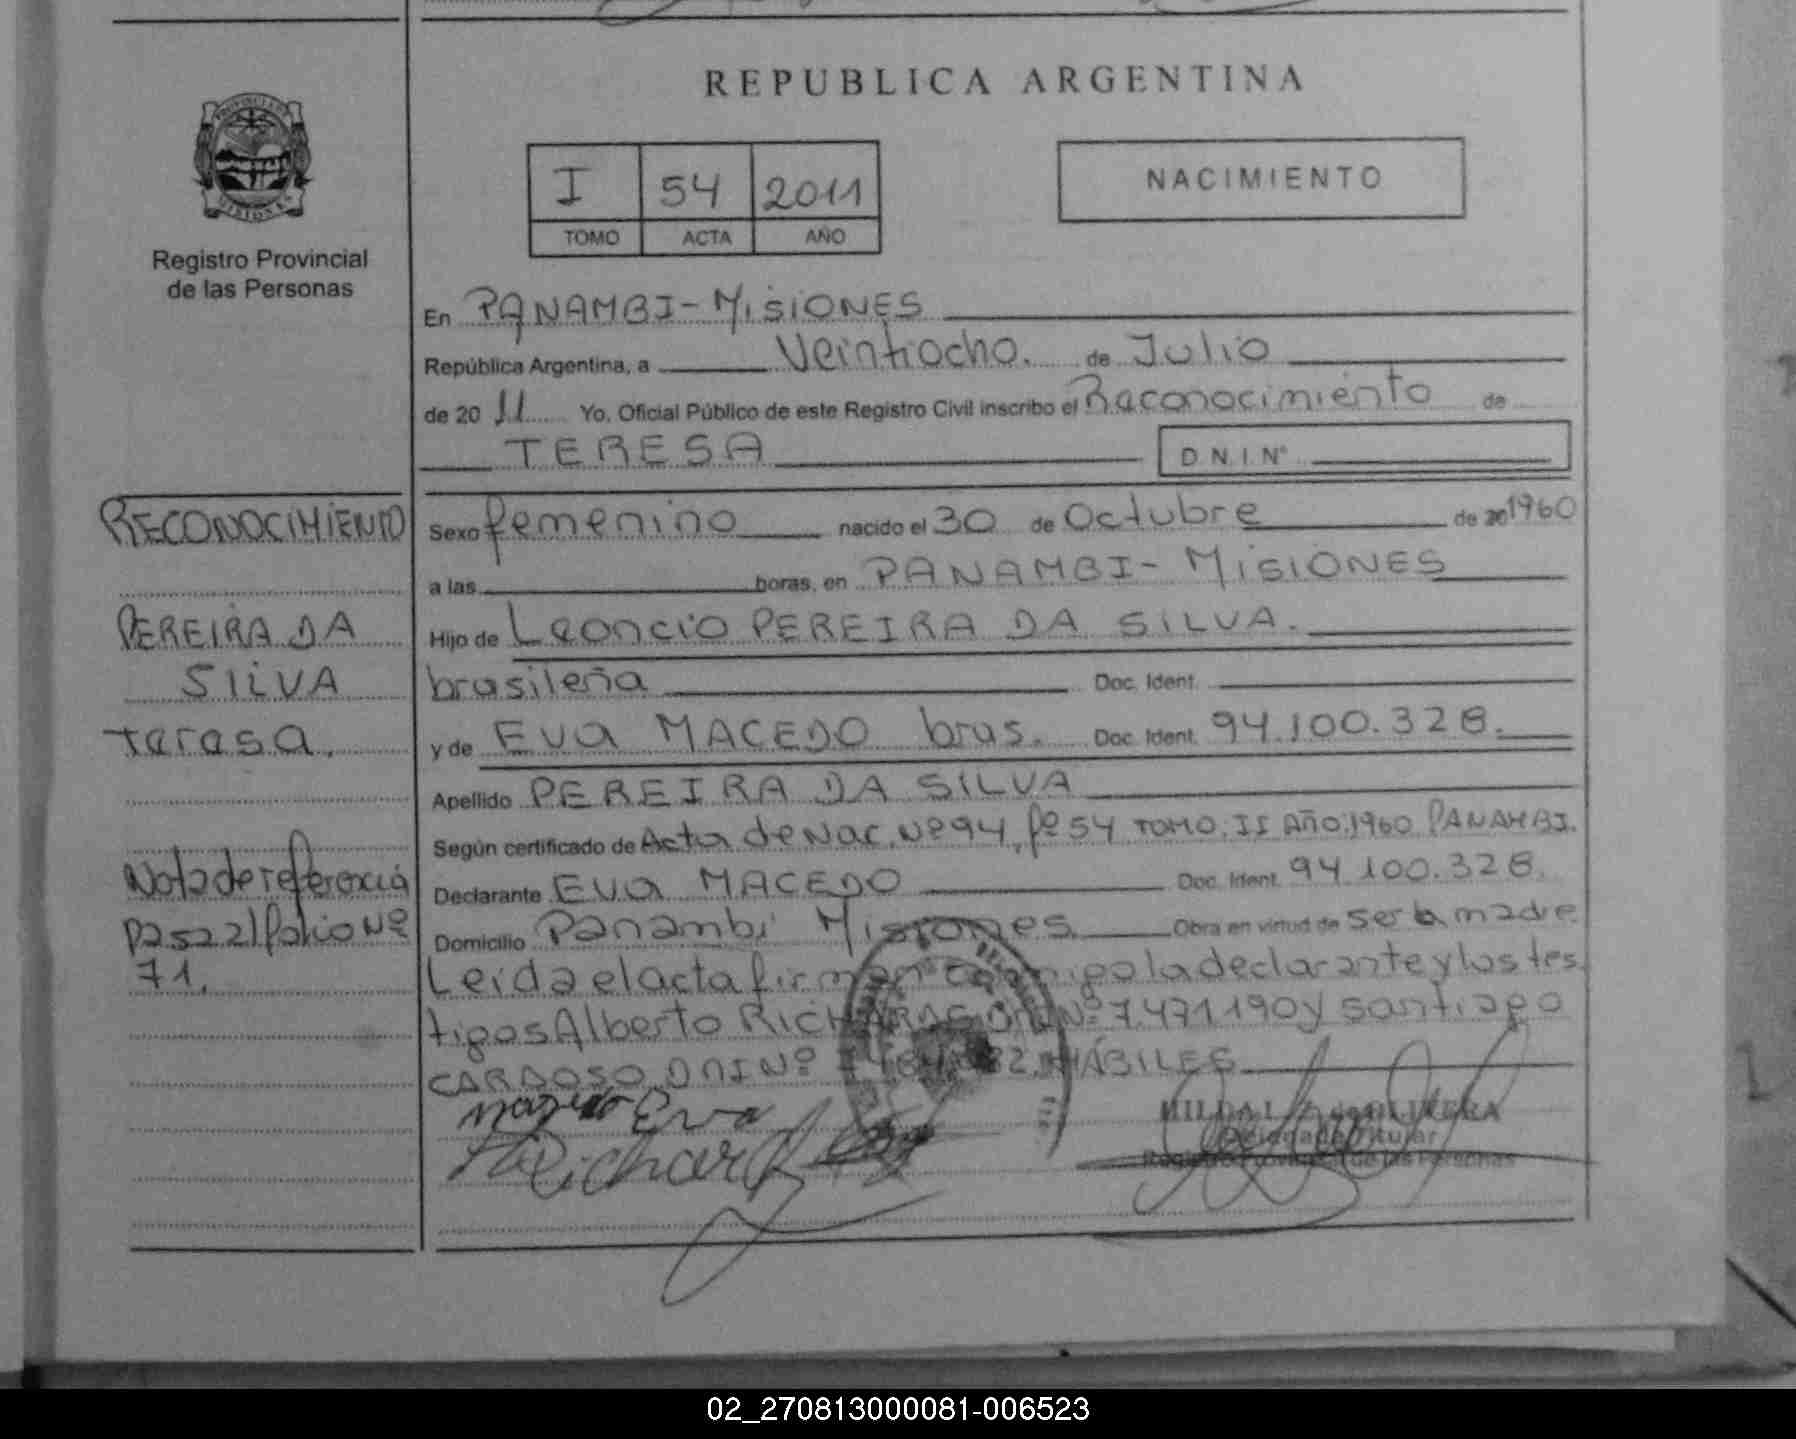 REPUBLICA ARGENTINA
I 54 2011
TOMO ACTA AÑO
NACIMIENTO
PROVINCIA DE
MISIONES
Registro Provincial
de las Personas
En PANAMBI-MISIONES
República Argentina, a Veintiocho. de Julio
de 20 11 Yo, Oficial Público de este Registro Civil inscribo el Reconocimiento de
TERESA D.N.I.N°
RECONOCIMIENTO
PEREIRA DA
SILVA
Teresa.
Nota de referencia
pasa al folio Nº
71.
Sexo femenino nacido el 30 de Octubre de 20 1960
a las horas, en PANAMBI-MISIONES
Hijo de Leoncio PEREIRA DA SILVA.
brasileña Doc. Ident.
y de Eva MACEDO bras. Doc. Ident. 94.100.328.
Apellido PEREIRA DA SILVA
Según certificado de Acta de Nac. Nº 94, fº 54 TOMO. II Año.1960 PANAMBI.
Declarante EVA MACEDO Doc. Ident. 94.100.328.
Domicilio Panambi Misiones Obra en virtud de ser la madre
Leida el acta firman conmigo la declarante y los tes
tigos Alberto DNI Nº 7.471190 y Santiago
CARDOSO DNI Nº HÁBILES
Eva
Richard
Delegada Titular
Registro Provincial de las Personas
02_270813000081-006523